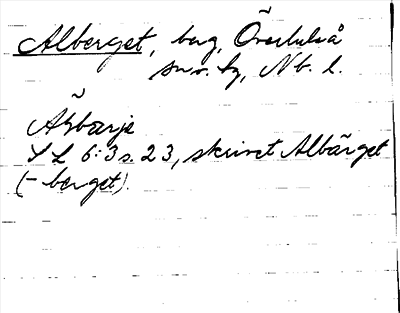 Alberget, berg, Överluleå
sn o. tg, Nb. l.
SL 6:3 s. 23, skrivet Albärget
(-berget).